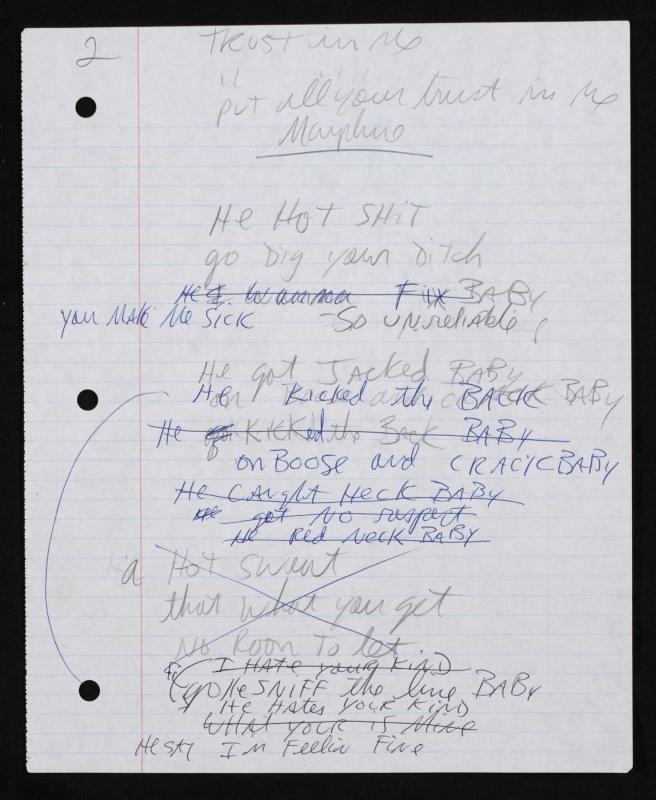 2
Trust in Me
" "
put all your trust in Me
Morphine
He Hot SHiT
go Dig your Ditch
He I. Wanna Fix BABY
you MAKE Me SICK So UNreliable
He got JAcked BABY
He Kicked the BACK BABY
He KICKed the Back BABY
on BOOSE and CRACK BABY
He CAUgHt HecK BABY
He got No suspect
He Red Neck BABY
a Hot Sweat
that what you get
No Room To let
I HATE your KIND
go He SNIFF the line BABY
He HATES YOUR KIND
WHAT your is Mine
He SAY I'm Feelin Fine